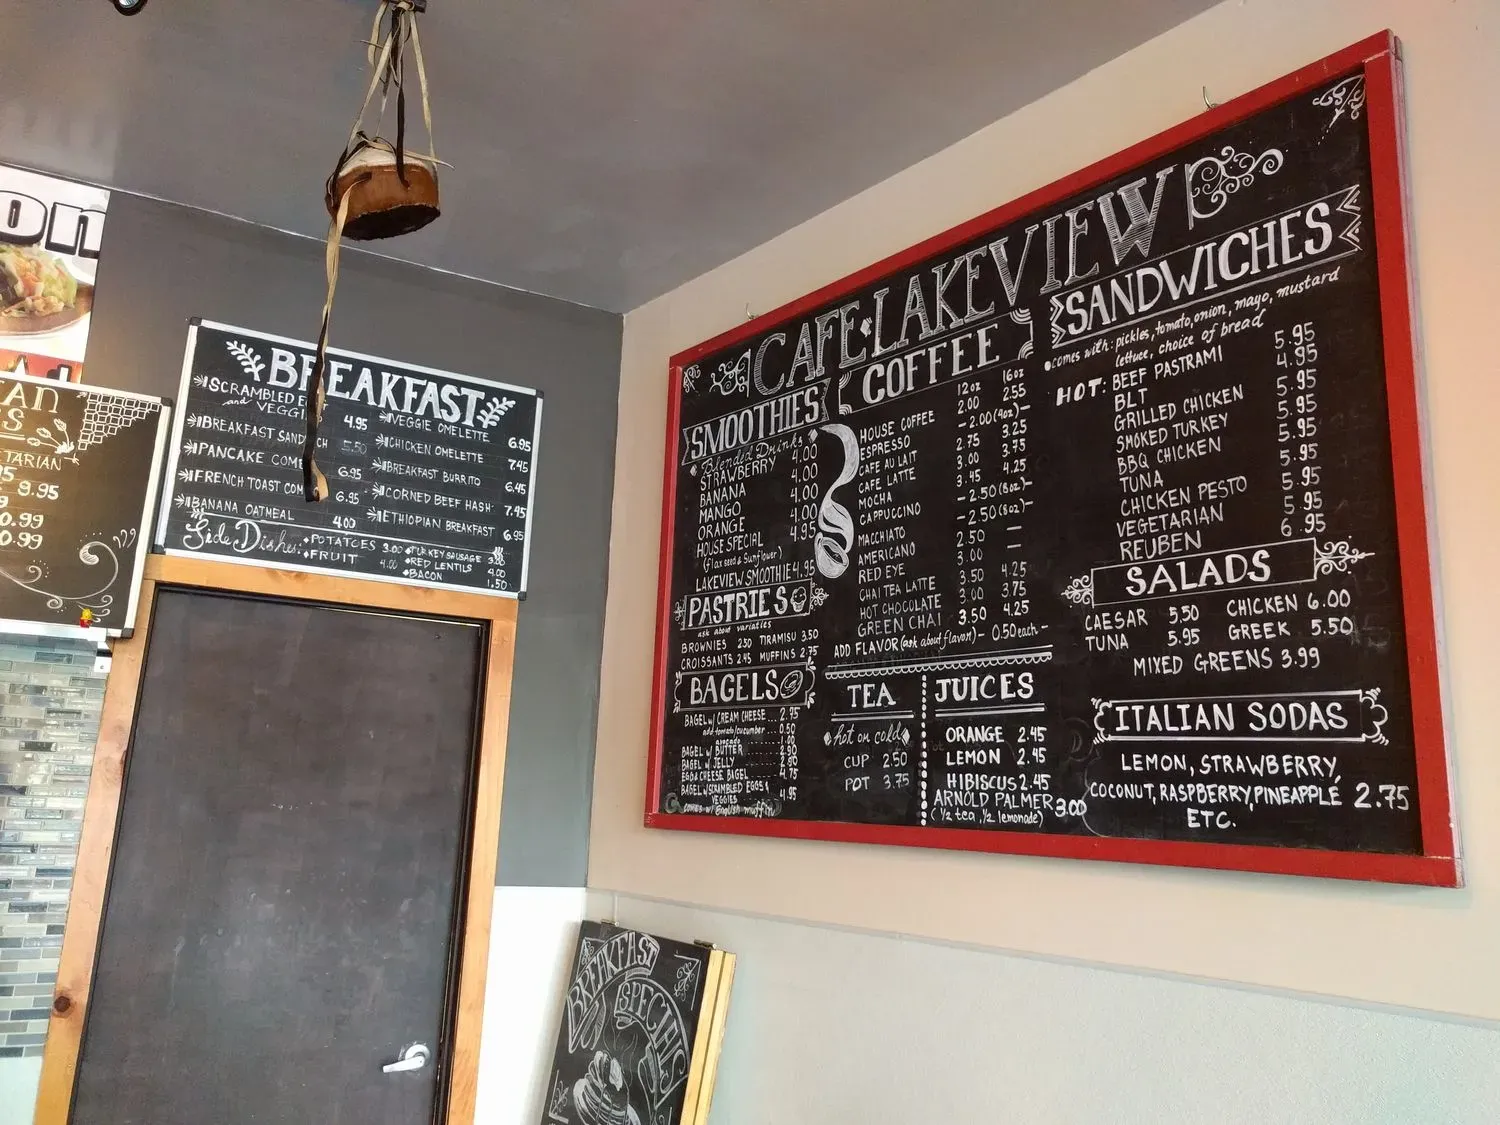 on
AN
S
TARIAN
95
8.95
9
0.99
0.99
BREAKFAST
SCRAMBLED
and VEGGI
4.95
BREAKFAST SANDWICH 5.50
PANCAKE COM 6.95
FRENCH TOAST COM 6.95
BANANA OATMEAL 4.00
VEGGIE OMELETTE 6.95
CHICKEN OMELETTE 7.45
BREAKFAST BURRITO 6.45
CORNED BEEF HASH 7.45
ETHIOPIAN BREAKFAST 6.95
Side Dishes:
POTATOES 3.00
FRUIT 4.00
TURKEY SAUSAGE 3.00
RED LENTILS 4.00
BACON 1.50
CAFE LAKEVIEW
SMOOTHIES
Blended Drinks
STRAWBERRY 4.00
BANANA 4.00
MANGO 4.00
ORANGE 4.00
HOUSE SPECIAL 4.95
(flax seed & Sunflower)
LAKEVIEW SMOOTHIE 4.95
PASTRIES
ask about varieties
BROWNIES 2.50 TIRAMISU 3.50
CROISSANTS 2.45 MUFFINS 2.75
BAGELS
BAGEL w/ CREAM CHEESE... 2.75
add tomato/cucumber 0.50
avocado
BAGEL w/ BUTTER
BAGEL w/ JELLY
EGG & CHEESE BAGEL 4.75
BAGEL w/ SCRAMBLED EGGS & VEGGIES 4.95
comes w/ English muffin
COFFEE
12oz 16oz
HOUSE COFFEE 2.00 2.55
ESPRESSO -2.00(4oz)-
CAFE AU LAIT 2.75 3.25
CAFE LATTE 3.00 3.75
MOCHA 3.45 4.25
CAPPUCCINO -2.50(8oz)-
MACCHIATO -2.50(8oz)-
AMERICANO 2.50 —
RED EYE 3.00 —
CHAI TEA LATTE 3.50 4.25
HOT CHOCOLATE 3.00 3.75
GREEN CHAI 3.50 4.25
ADD FLAVOR (ask about flavor) - 0.50 each -
TEA
hot or cold
CUP 2.50
POT 3.75
JUICES
ORANGE 2.45
LEMON 2.45
HIBISCUS 2.45
ARNOLD PALMER 3.00
(½ tea, ½ lemonade)
SANDWICHES
comes with: pickles, tomato, onion, mayo, mustard
lettuce, choice of bread
HOT: BEEF PASTRAMI 5.95
BLT 4.95
GRILLED CHICKEN 5.95
SMOKED TURKEY 5.95
BBQ CHICKEN 5.95
TUNA 5.95
CHICKEN PESTO 5.95
VEGETARIAN 5.95
REUBEN 6.95
SALADS
CAESAR 5.50 CHICKEN 6.00
TUNA 5.95 GREEK 5.50
MIXED GREENS 3.99
ITALIAN SODAS
LEMON, STRAWBERRY,
COCONUT, RASPBERRY, PINEAPPLE 2.75
ETC.
BREAKFAST
SPECIALS